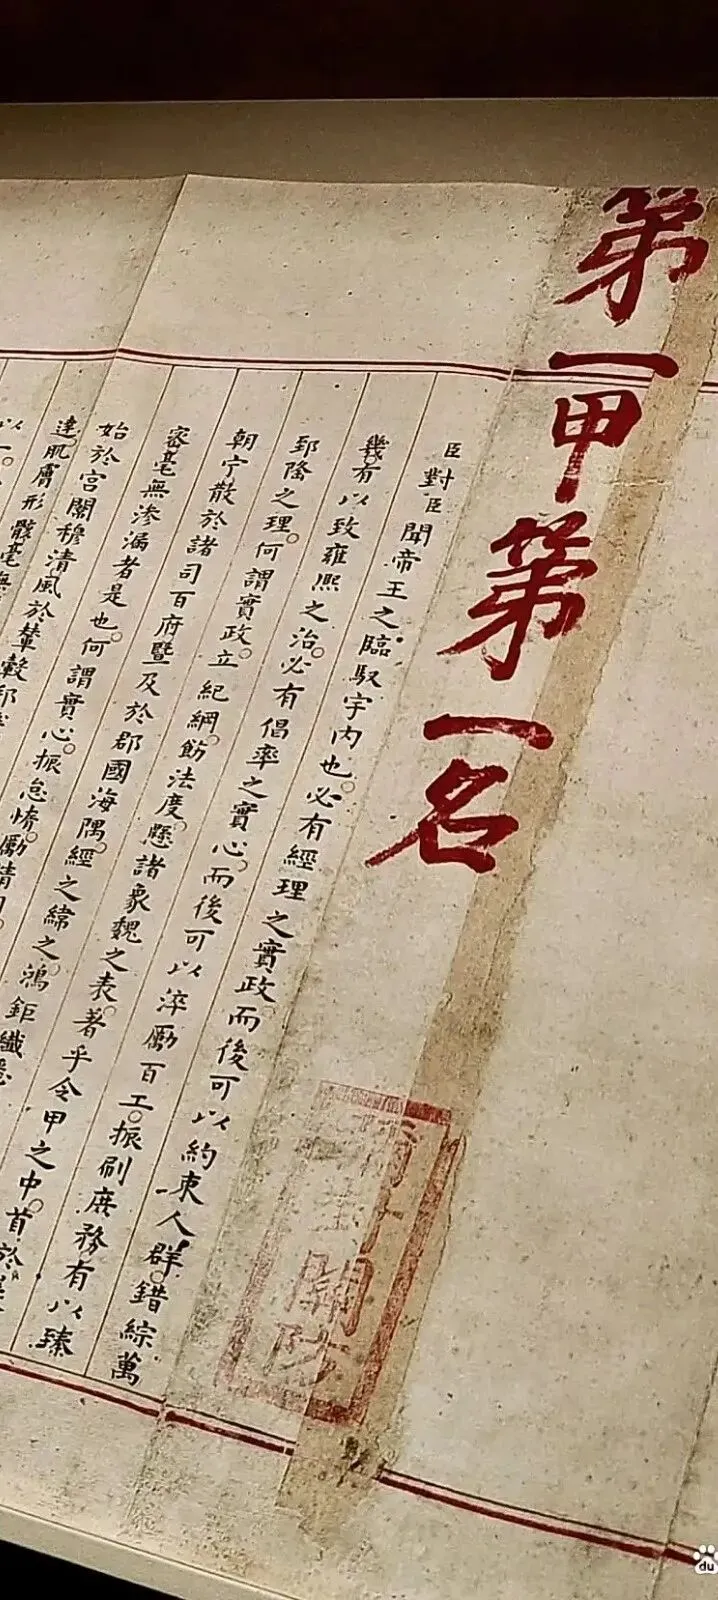 第一甲第一名
臣對臣聞帝王之臨馭宇内也。必有經理之實政而後可以約束人群。錯綜萬
幾。有以致雍熙之治。必有倡率之實心。而後可以淬勵百工。振刷庶務。有以臻
郅隆之理。何謂實政。立紀綱。飭法度。懸諸象魏之表。著乎令甲之中。首於
朝宁散於諸司百府暨及於郡國海隅。經之緯之。鴻鉅纖悉
密毫無滲漏者是也。何謂實心。振怠惰。勵精明
始於宮闈穆清風於輦轂邦
達肌膚形骸毫無
以一。
關防
du